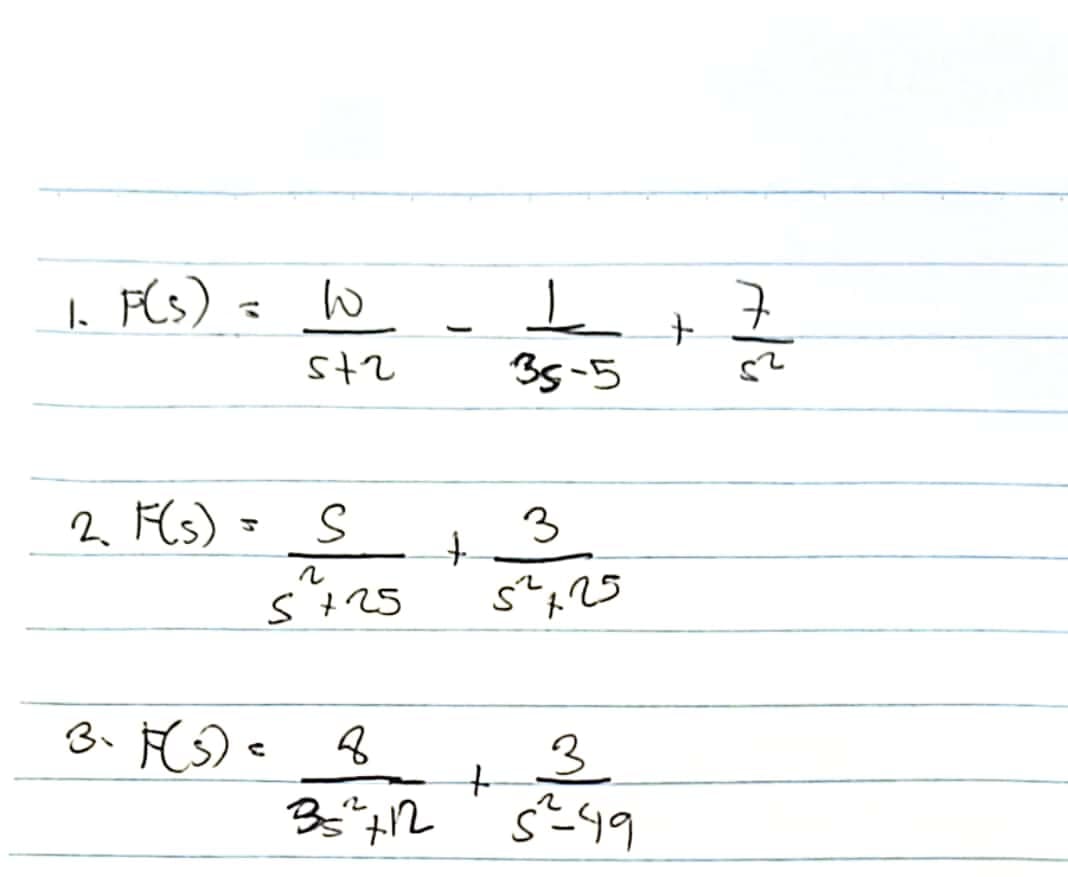 1. F(s) = 10/(s+2) - 1/(3s-5) + 7/s²
2. F(s) = s/(s²+25) + 3/(s²+25)
3. F(s) = 8/(3s²+12) + 3/(s²-49)